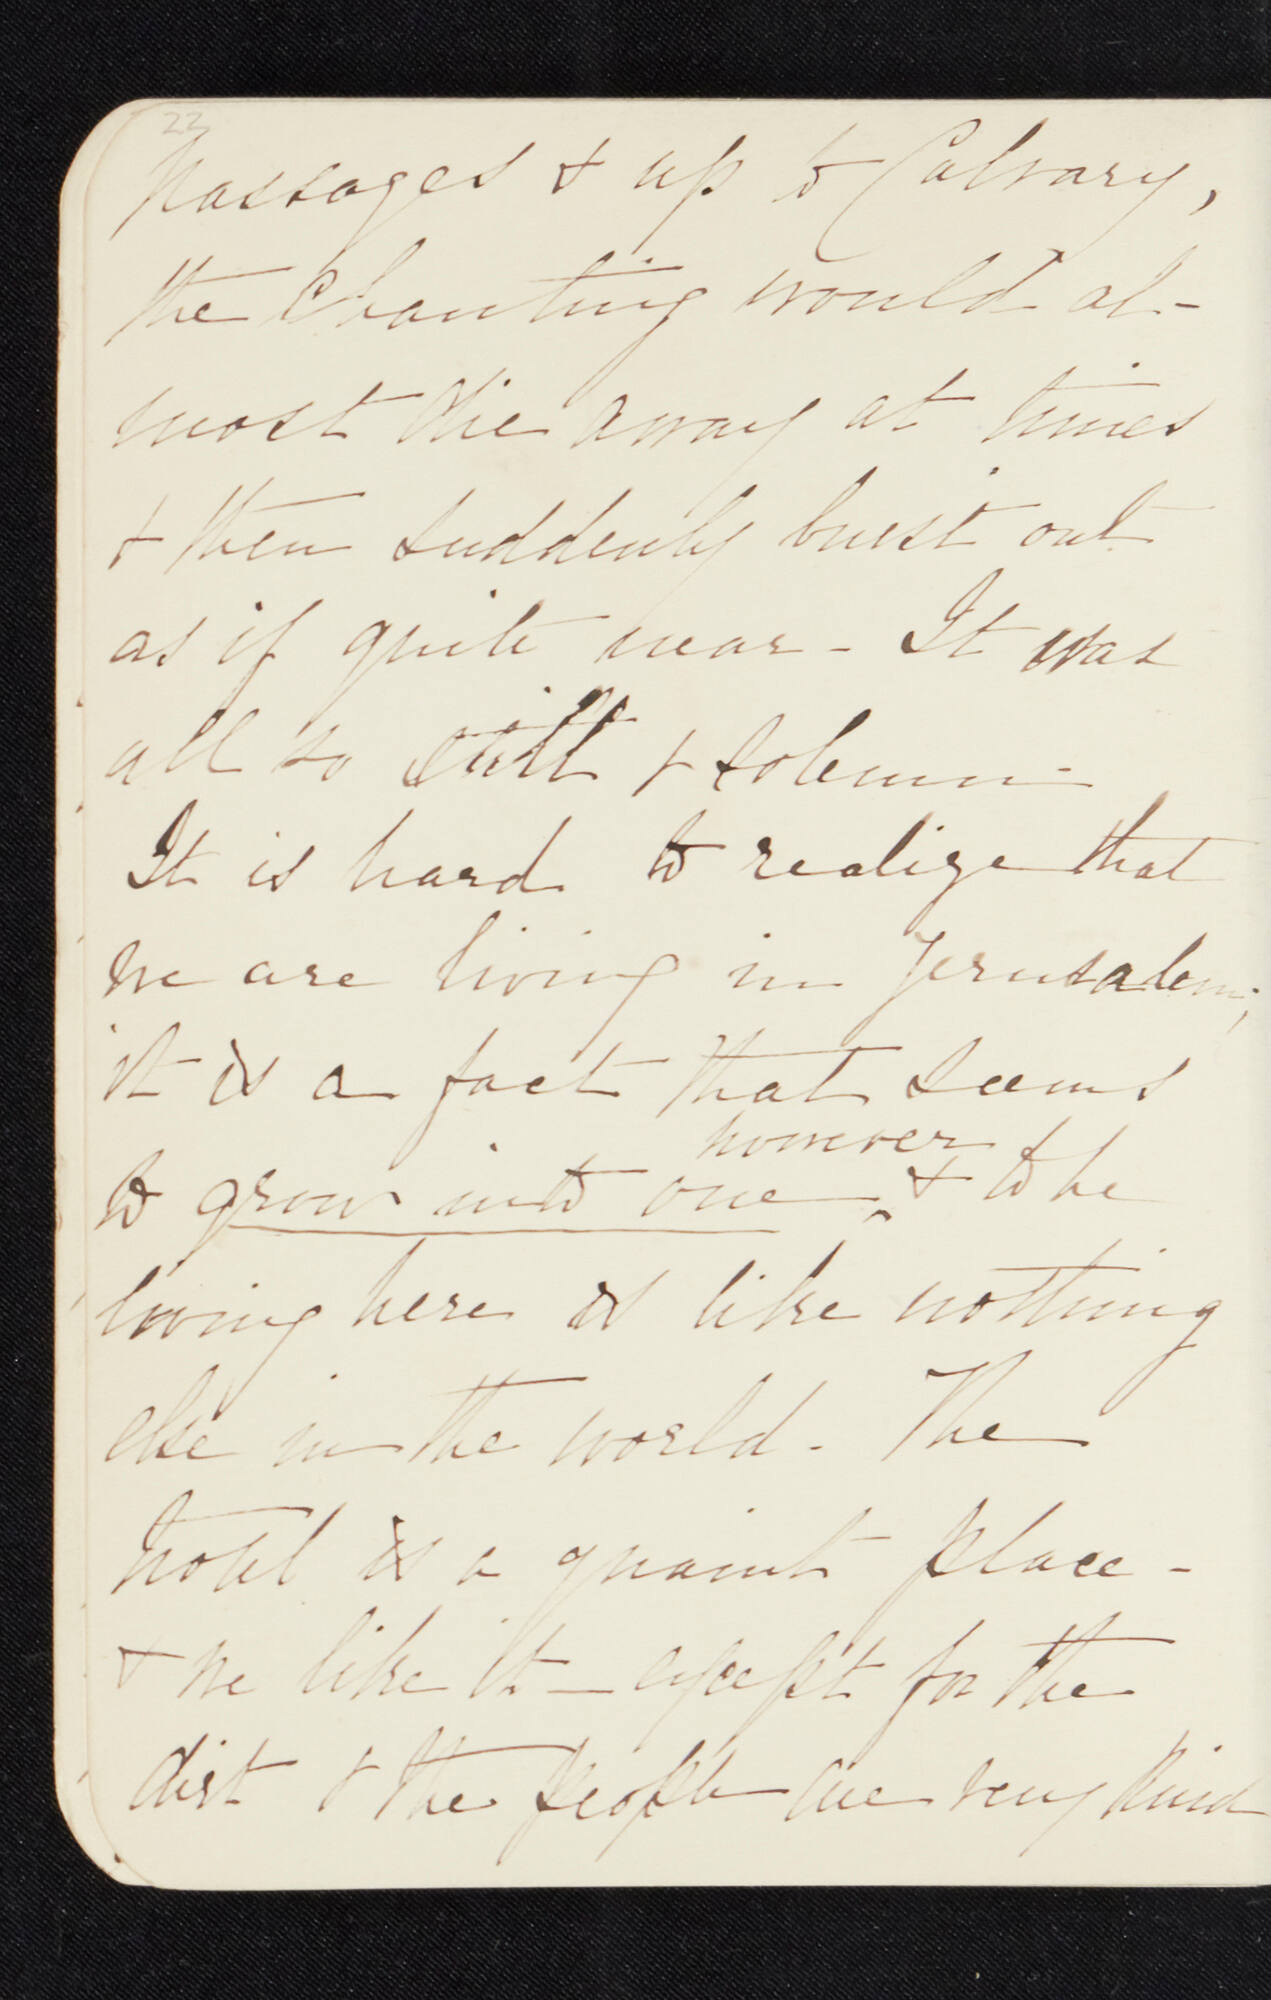 22
passages & up to Calvary,
the chanting would al-
most die away at times
& then suddenly burst out
as if quite near - It was
all so still & solemn -
It is hard to realize that
we are living in Jerusalem;
it is a fact that seems
however
to grow into one, & to be
living here is like nothing
else in the world. The
hotel is a quaint place -
& we like it - except for the
dirt & the people are very kind